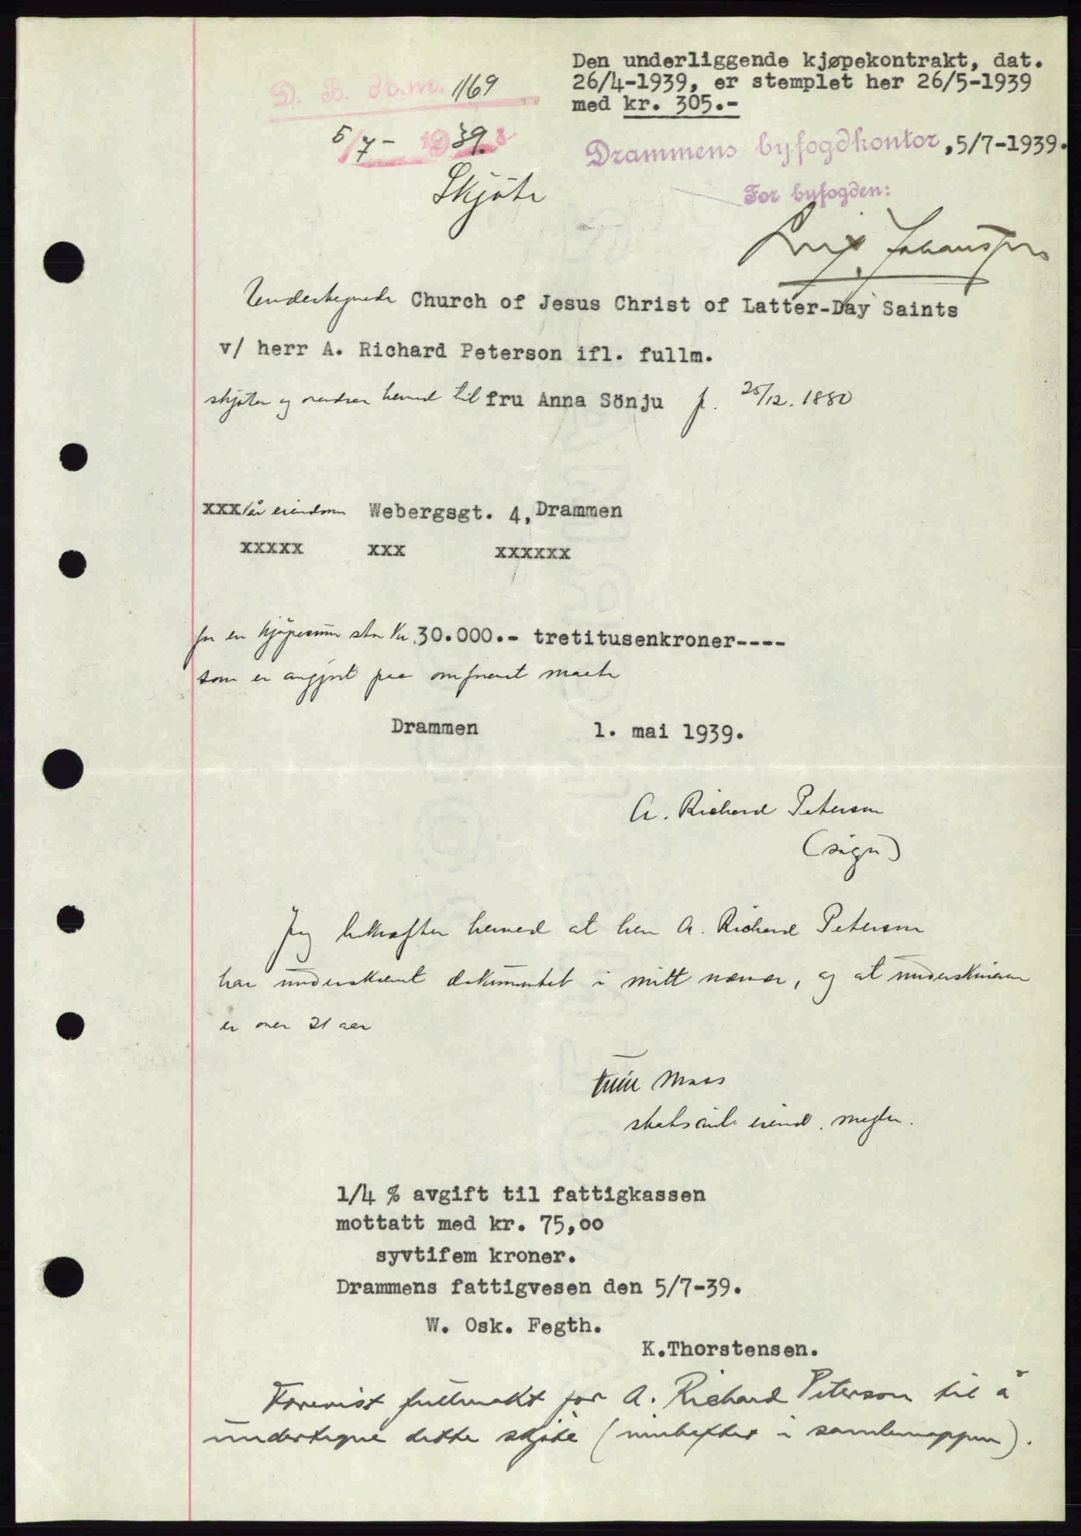 Den underliggende kjøpekontrakt, dat.
26/4-1939, er stemplet her 26/5-1939
med kr. 305.-
D. B. db.nr. 1169
5/7- 1939.
Drammens byfogdkontor, 5/7-1939.
For byfogden:
Skjøte
Undertegnede Church of Jesus Christ of Latter-Day Saints
v/ herr A. Richard Peterson ifl. fullm.
skjøter og overdrar herved til fru Anna Sönju f. 25/12. 1880
xxx vår eiendom Webergsgt. 4, Drammen
xxxxx xxx xxxxxx
for en kjøpesum stor kr. 30.000.- tretitusenkroner----
som er avgjort paa omforenet maate
Drammen 1. mai 1939.
A. Richard Peterson
(sign)
Jeg bekrefter herved at herr A. Richard Peterson
har underskrevet dokumentet i mitt nærvær, og at underskriveren
er over 21 aar
Maas
statsaut. eiend. megler.
1/4 % avgift til fattigkassen
mottatt med kr. 75,oo
syvtifem kroner.
Drammens fattigvesen den 5/7-39.
W. Osk. Fegth.
K.Thorstensen.
Forevist fullmakt for A. Richard Peterson til å
undertegne dette skjøte (innheftet i samlemappen).